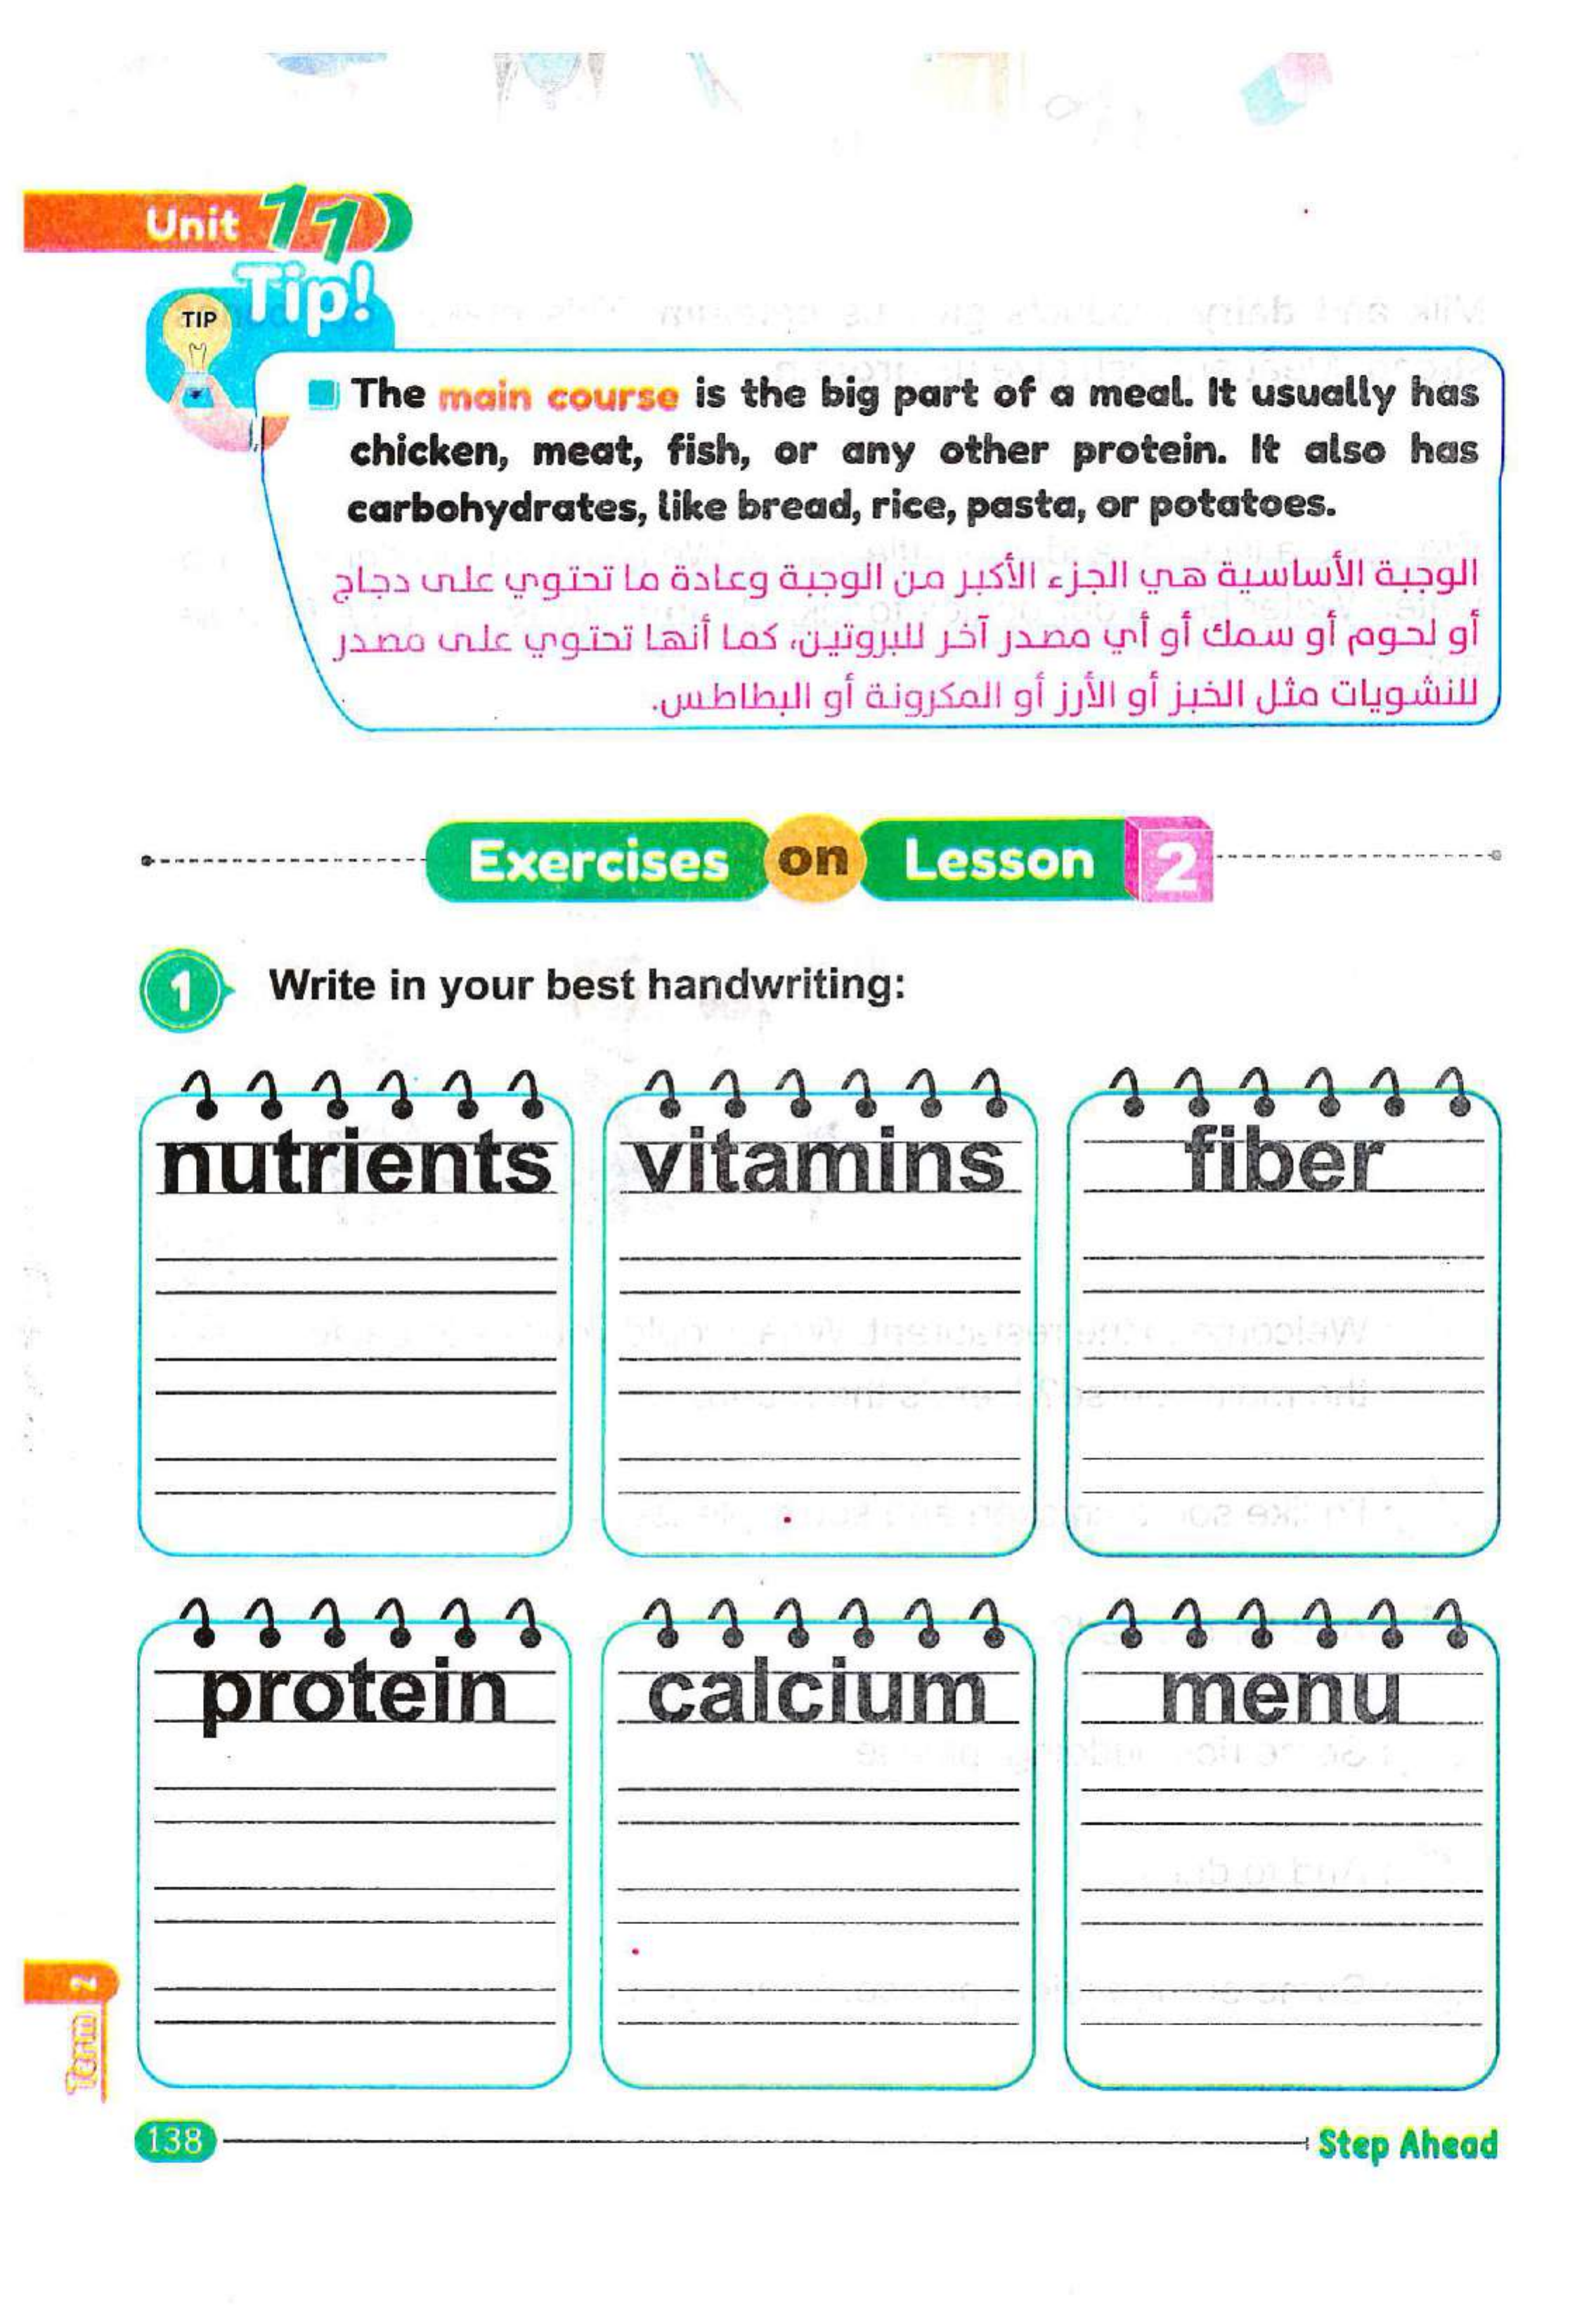 Unit 11
Tip!
TIP
The main course is the big part of a meal. It usually has
chicken, meat, fish, or any other protein. It also has
carbohydrates, like bread, rice, pasta, or potatoes.
الوجبة الأساسية هي الجزء الأكبر من الوجبة وعادة ما تحتوي على دجاج
أو لحوم أو سمك أو أي مصدر آخر للبروتين، كما أنها تحتوي على مصدر
للنشويات مثل الخبز أو الأرز أو المكرونة أو البطاطس.
Exercises on Lesson 2
1 Write in your best handwriting:
nutrients vitamins fiber
protein calcium menu
Term 2
138 Step Ahead